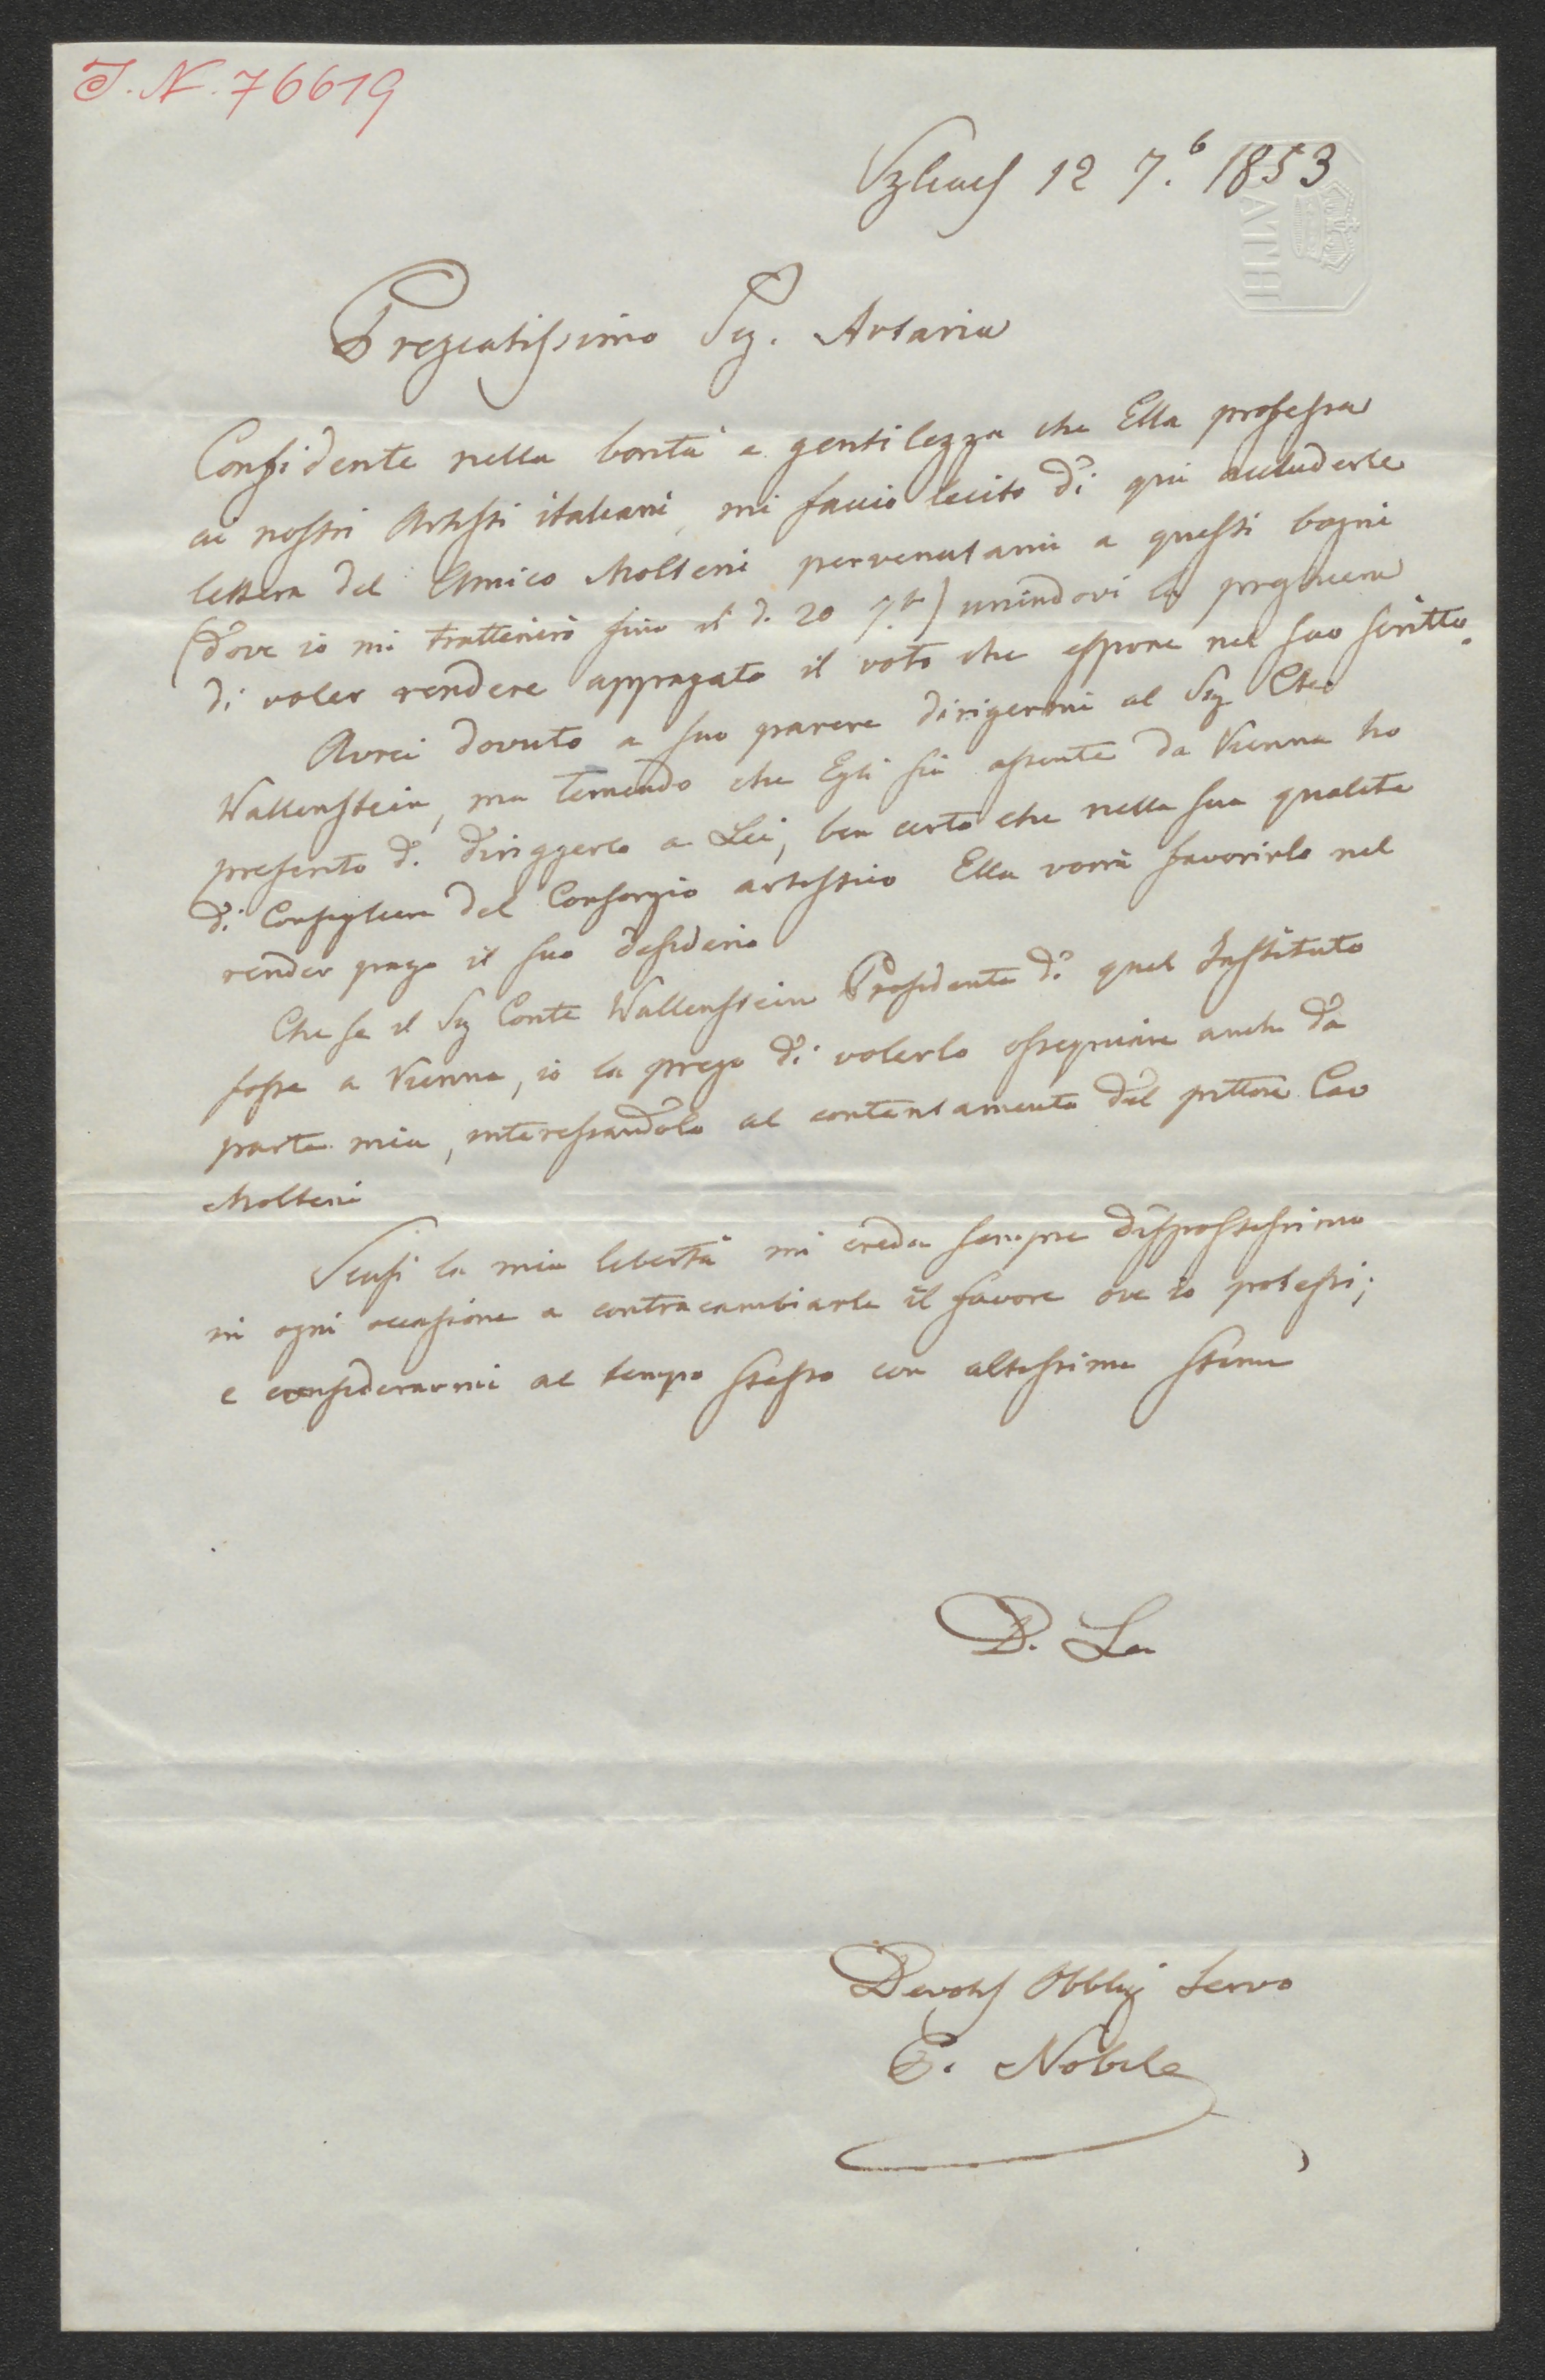 I.N. 76619
12 7.b 1853
BATH
Pregiatissimo Sig. Artaria
Confidente nella bontà e gentilezza che Ella professa
ai nostri Artisti italiani, mi faccio lecito di qui accluderle
lettera del Amico Molteni pervenutami a questi bagni
(dove io mi tratterrò fino il d. 20 7.br) unindovi la preghiera
di voler rendere appagato il voto che espone nel suo scritto.
Avrei dovuto a suo parere dirigermi al Sig Cte
Wallenstein, ma temendo che Egli sia assente da Vienna ho
preferito di diriggerlo a Lei, ben certo che nella sua qualità
di Consigliere del Consorzio artistico Ella vorrà favorirlo nel
render pago il suo desiderio
Che se il Sig Conte Wallenstein Presidente di quel Instituto
fosse a Vienna, io la prego di volerlo ossequiare anche da
parte mia, interessandolo al contentamento del pittore Cav
Molteni
Scusi la mia libertà mi creda sempre dispostissimo
in ogni occasione a contracambiarle il favore ove io potessi;
e considerarmi al tempo stesso con altissima stima
D. Lei
Devots Obblig Servo
P. Nobile